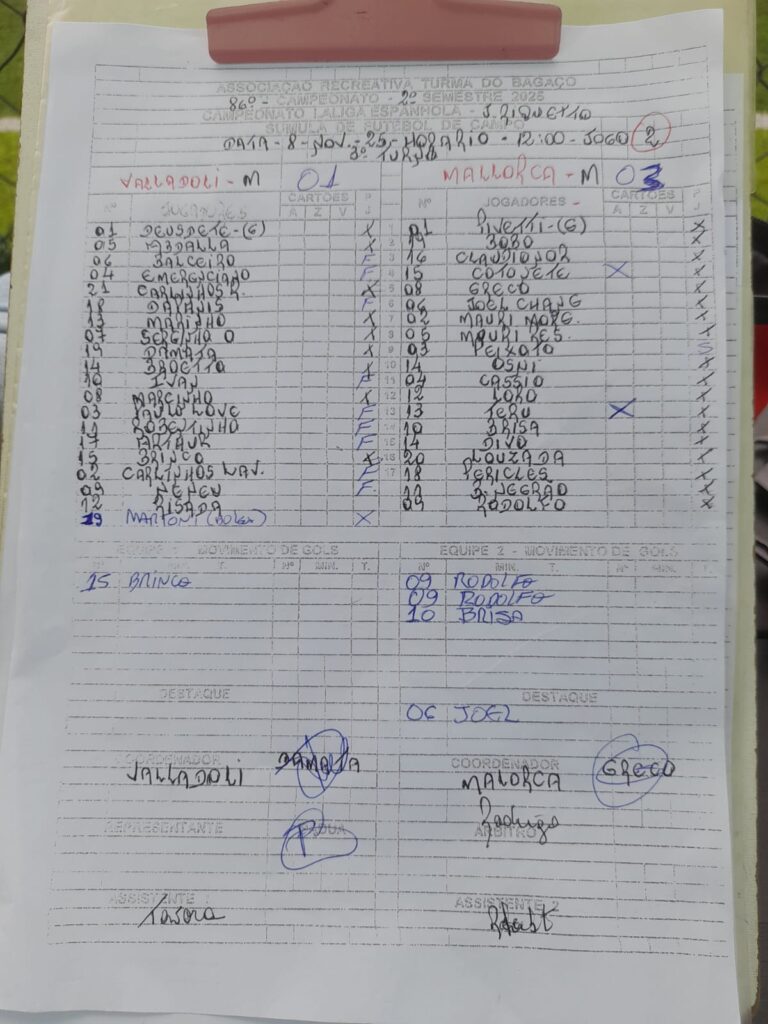 ASSOCIAÇÃO RECREATIVA TURMA DO BAGAÇO
86º - CAMPEONATO - 2º SEMESTRE 2025
CAMPEONATO LALIGA ESPANHOLA - J. PIQUETTO
SÚMULA DE FUTEBOL DE CAMPO
DATA - 8 - NOV. - 25 - HORARIO - 12:00 - JOGO 2
3º TURNO
VALLADOLI - M 01 MALLORCA - M 03
Nº JOGADORES CARTÕES P Nº JOGADORES - CARTÕES P
A Z V J A Z V J
01 DEUSDETE - (G) X 1 01 PIVETTI - (G) X
05 ABDALLA X 2 19 BOBO X
06 BALCEIRO F 3 16 CLAUDIONOR X
04 EMERENCIANO F 4 15 COTONETE X X
21 CARLINHOS R. X 5 08 GRECO X
18 F 6 06 JOEL CHANG X
13 MARINHO X 7 02 MAURI MORG. X
07 SERGINHO O X 8 05 MAURI RES. X
19 DAMATA X 9 03 PEIXOTO S
14 BROETTO X 10 14 OSNI X
10 IVAN F 11 04 CASSIO X
08 MARCINHO X 12 12 LORO X
03 PAULO LOVE F 13 13 TERU X X
11 ROBERTINHO F 14 10 BRISA X
17 ARTHUR F 15 14 DIVO X
15 BRINCO X 16 20 LOUZADA X
02 CARLINHOS LAV. F 17 18 PERICLES X
09 NENEU F 11 B. NEGRÃO X
12 RISADA 09 RODOLFO X
19 X
EQUIPE 1 - MOVIMENTO DE GOLS EQUIPE 2 - MOVIMENTO DE GOLS
Nº MIN. T. Nº MIN. T. Nº MIN. T. Nº MIN. T.
15 BRINCO 09 RODOLFO
09 RODOLFO
10 BRISA
DESTAQUE DESTAQUE
06 JOEL
COORDENADOR DAMATTA COORDENADOR GRECO
VALLADOLI MALORCA
REPRESENTANTE Rodrigo
ARBITRO
ASSISTENTE 1 ASSISTENTE 2